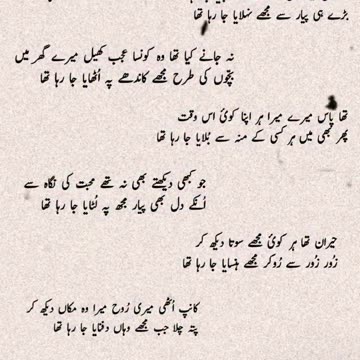 بڑے ہی پیار سے مجھے نہلایا جا رہا تھا
نہ جانے کیا تھا وہ کونسا عجب کھیل میرے گھر میں
بچّوں کی طرح مجھے کاندھے پہ اُٹھایا جا رہا تھا
تھا پاس میرے میرا ہر اپنا کوئ اس وقت
پھر بھی میں ہر کسی کے منہ سے بلایا جا رہا تھا
جو کبھی دیکھتے بھی نہ تھے محبت کی نگاہ سے
اُنکے دل بھی پیار مجھ پہ لُٹایا جا رہا تھا
حیران تھا ہر کوئ مجھے سوتا دیکھ کر
زور زور سے روکر مجھے ہنسایا جا رہا تھا
کانپ اُٹھی میری رُوح میرا وہ مکاں دیکھ کر
پتہ چلا جب مجھے وہاں دفنایا جا رہا تھا